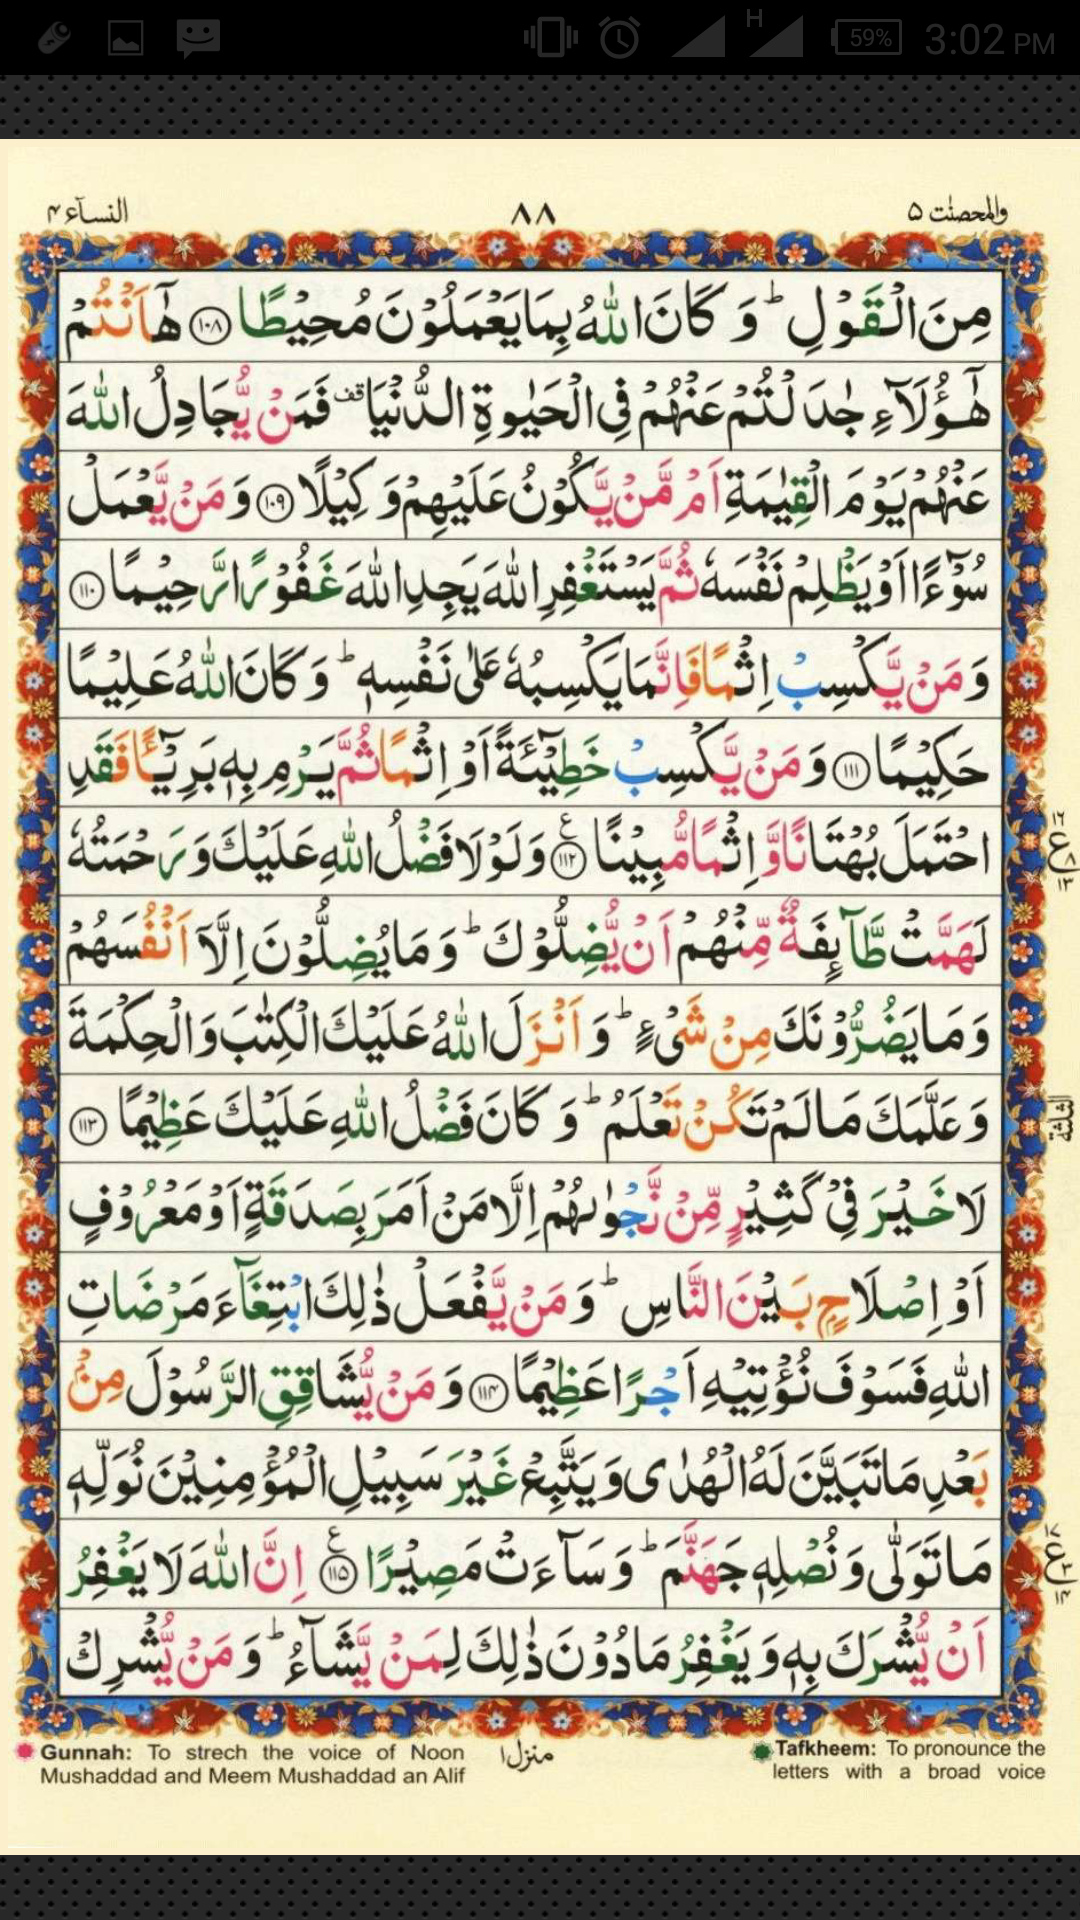 H 59% 3:02 PM
والمحصنٰت ۵ ٨٨ النسآء ۴
مِنَ الْقَوْلِ ؕ وَ كَانَ اللّٰهُ بِمَا يَعْمَلُوْنَ مُحِيْطًا ﴿۱۰۸﴾ هٰۤاَنْتُمْ
هٰۤؤُلَآءِ جٰدَلْتُمْ عَنْهُمْ فِي الْحَيٰوةِ الدُّنْيَا قف فَمَنْ يُّجَادِلُ اللّٰهَ
عَنْهُمْ يَوْمَ الْقِيٰمَةِ اَمْ مَّنْ يَّكُوْنُ عَلَيْهِمْ وَكِيْلًا ﴿۱۰۹﴾ وَ مَنْ يَّعْمَلْ
سُوْٓءًا اَوْ يَظْلِمْ نَفْسَهٗ ثُمَّ يَسْتَغْفِرِ اللّٰهَ يَجِدِ اللّٰهَ غَفُوْرًا رَّحِيْمًا ﴿۱۱۰﴾
وَ مَنْ يَّكْسِبْ اِثْمًا فَاِنَّمَا يَكْسِبُهٗ عَلٰى نَفْسِهٖ ؕ وَ كَانَ اللّٰهُ عَلِيْمًا
حَكِيْمًا ﴿۱۱۱﴾ وَ مَنْ يَّكْسِبْ خَطِيْٓئَةً اَوْ اِثْمًا ثُمَّ يَرْمِ بِهٖ بَرِيْٓـًٔا فَقَدِ
احْتَمَلَ بُهْتَانًا وَّ اِثْمًا مُّبِيْنًا ﴿۱۱۲﴾ ع وَ لَوْ لَا فَضْلُ اللّٰهِ عَلَيْكَ وَ رَحْمَتُهٗ
۱۶ ع ۸ ۱۳
لَهَمَّتْ طَّآىِٕفَةٌ مِّنْهُمْ اَنْ يُّضِلُّوْكَ ؕ وَ مَا يُضِلُّوْنَ اِلَّاۤ اَنْفُسَهُمْ
وَ مَا يَضُرُّوْنَكَ مِنْ شَيْءٍ ؕ وَ اَنْزَلَ اللّٰهُ عَلَيْكَ الْكِتٰبَ وَ الْحِكْمَةَ
وَ عَلَّمَكَ مَا لَمْ تَكُنْ تَعْلَمُ ؕ وَ كَانَ فَضْلُ اللّٰهِ عَلَيْكَ عَظِيْمًا ﴿۱۱۳﴾
الثلثة
لَا خَيْرَ فِيْ كَثِيْرٍ مِّنْ نَّجْوٰىهُمْ اِلَّا مَنْ اَمَرَ بِصَدَقَةٍ اَوْ مَعْرُوْفٍ
اَوْ اِصْلَاحٍۭ بَيْنَ النَّاسِ ؕ وَ مَنْ يَّفْعَلْ ذٰلِكَ ابْتِغَآءَ مَرْضَاتِ
اللّٰهِ فَسَوْفَ نُؤْتِيْهِ اَجْرًا عَظِيْمًا ﴿۱۱۴﴾ وَ مَنْ يُّشَاقِقِ الرَّسُوْلَ مِنْۢ
بَعْدِ مَا تَبَيَّنَ لَهُ الْهُدٰى وَ يَتَّبِعْ غَيْرَ سَبِيْلِ الْمُؤْمِنِيْنَ نُوَلِّهٖ
مَا تَوَلّٰى وَ نُصْلِهٖ جَهَنَّمَ ؕ وَ سَآءَتْ مَصِيْرًا ﴿۱۱۵﴾ ع اِنَّ اللّٰهَ لَا يَغْفِرُ
۱۷ ع ۳ ۱۴
اَنْ يُّشْرَكَ بِهٖ وَ يَغْفِرُ مَا دُوْنَ ذٰلِكَ لِمَنْ يَّشَآءُ ؕ وَ مَنْ يُّشْرِكْ
Gunnah: To strech the voice of Noon
Mushaddad and Meem Mushaddad an Alif
منزل ۱
Tafkheem: To pronounce the
letters with a broad voice